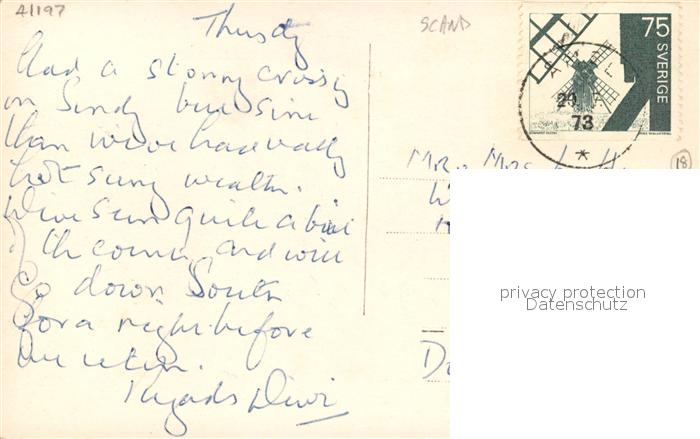 41197
SCAND
75
SVERIGE
73
Thursdy
Had a stormy crossing
on Sundy but since
then we've had really
hot sunny weather.
We've seen quite a bit
of the country and will
go down South
for a night before
we return.
Regards
Mr. Mrs
18
privacy protection
Datenschutz